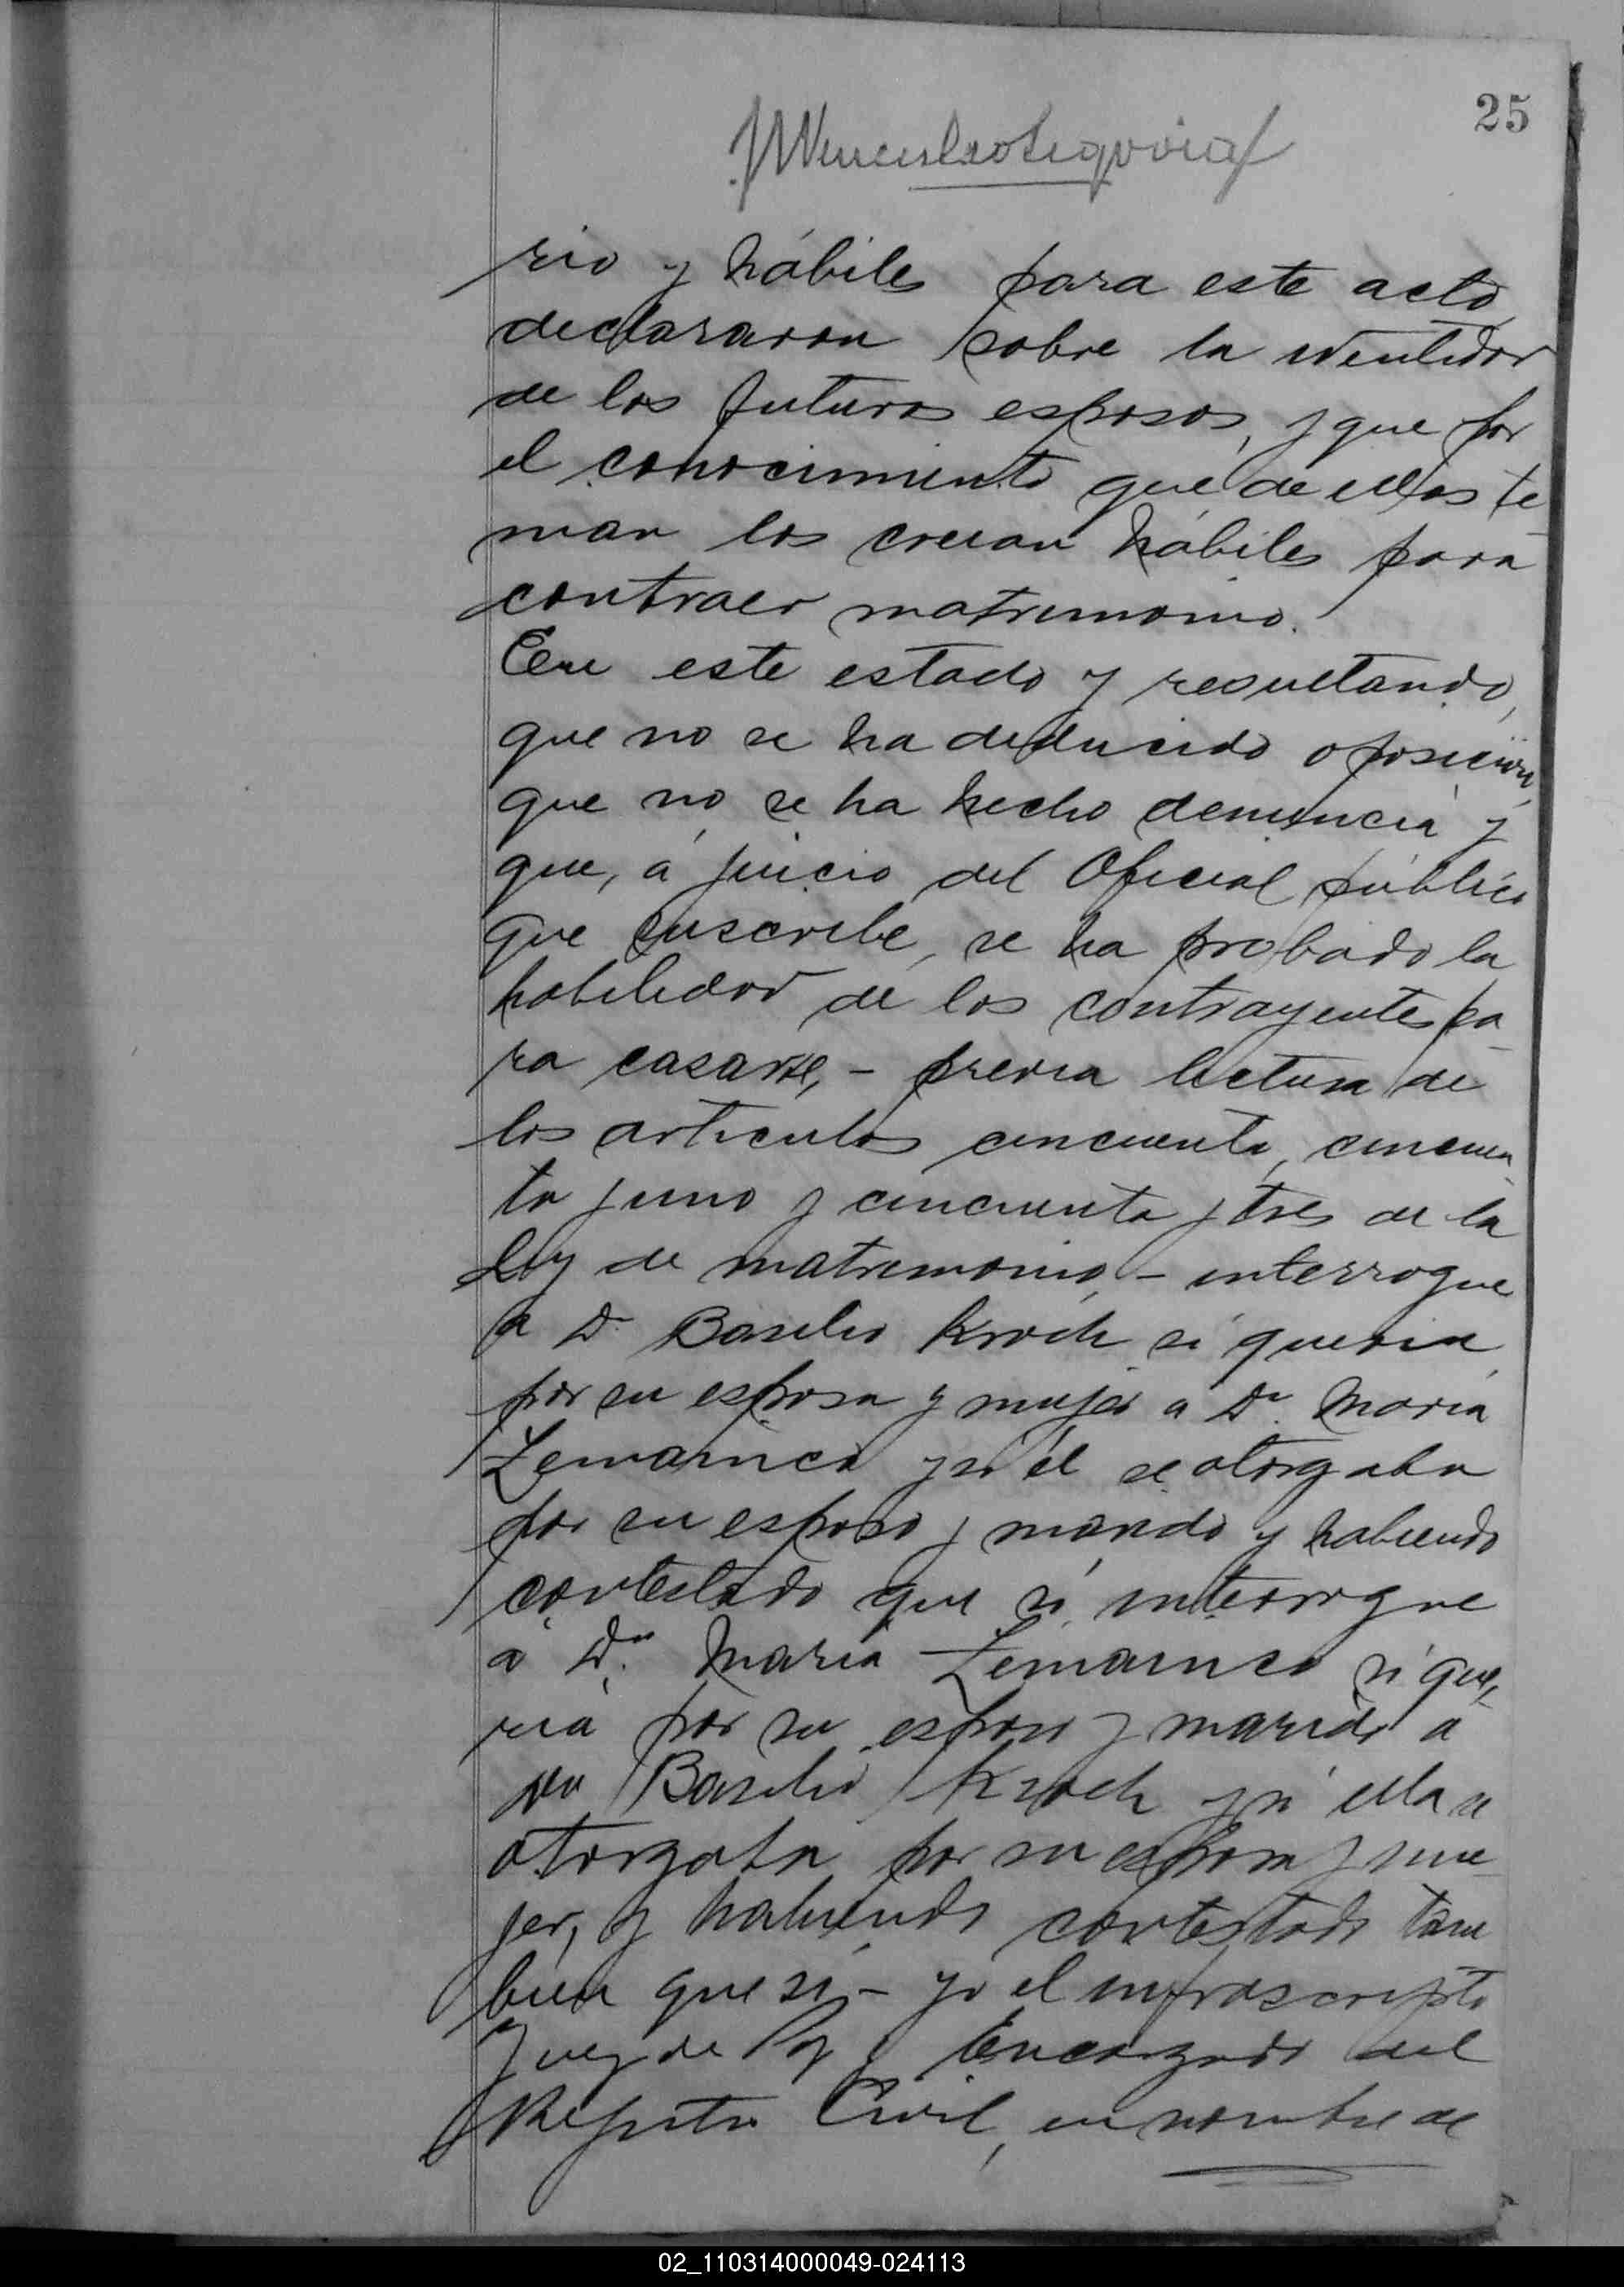 25
rio y hábiles para este acto
declararon sobre la identidad
de los futuros esposos, y que por
el conocimiento que de ellos te-
nian los creian hábiles para
contraer matrimonio.
En este estado y resultando,
que no se ha deducido oposicion,
que no se ha hecho denuncia y
que, á juicio del Oficial público
que suscribe, se ha probado la
habilidad de los contrayentes pa-
ra casarse, - previa lectura de
los articulos cincuenta, cincuen-
ta y uno y cincuenta y tres de la
Ley de matrimonio, - interrogue
a Dn Basilio Kroch si queria
por su esposa y mujer a Da Maria
y si él se otorgaba
por su esposo y marido y habiendo
contestado que si, interrogue
a Da. Maria si que-
ria por su esposo y marido a
Dn Basilio Kroch y si ella se
otorgaba por su esposa y mu-
jer, y habiendo contestado tam
bien que si - yo el infrascripto
Juez de Paz, Encargado del
Registro Civil, en nombre de
02_110314000049-024113